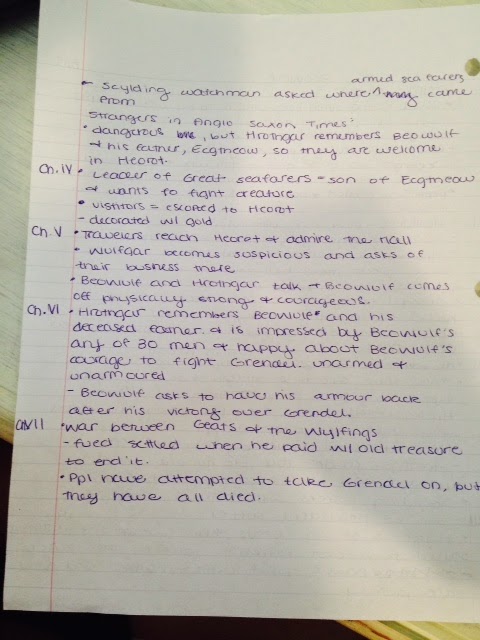 armed sea farers
- Scylding watchman asked where ^ many came
from
Strangers in Anglo Saxon Times:
• dangerous, but Hrothgar remembers Beowulf
& his father, Ecgtheow, so they are welcome
in Heorot.
Ch. IV • Leader of Great seafarers = son of Ecgtheow
& wants to fight creature
• visitors = escorted to Heorot
- decorated w/ gold
Ch. V • Travelers reach Heorot & admire the hall
• Wulfgar becomes suspicious and asks of
their business there
• Beowulf and Hrothgar talk & Beowulf comes
off physically strong & courageous.
Ch. VI • Hrothgar remembers Beowulf and his
deceased father & is impressed by Beowulf's
army of 30 men & happy about Beowulf's
courage to fight Grendel unarmed &
unarmoured
- Beowulf asks to have his armour back
after his victory over Grendel.
Ch VII • war between Geats & the Wylfings
- fued settled when he paid w/ old treasure
to end it.
• Ppl have attempted to take Grendel on, but
they have all died.